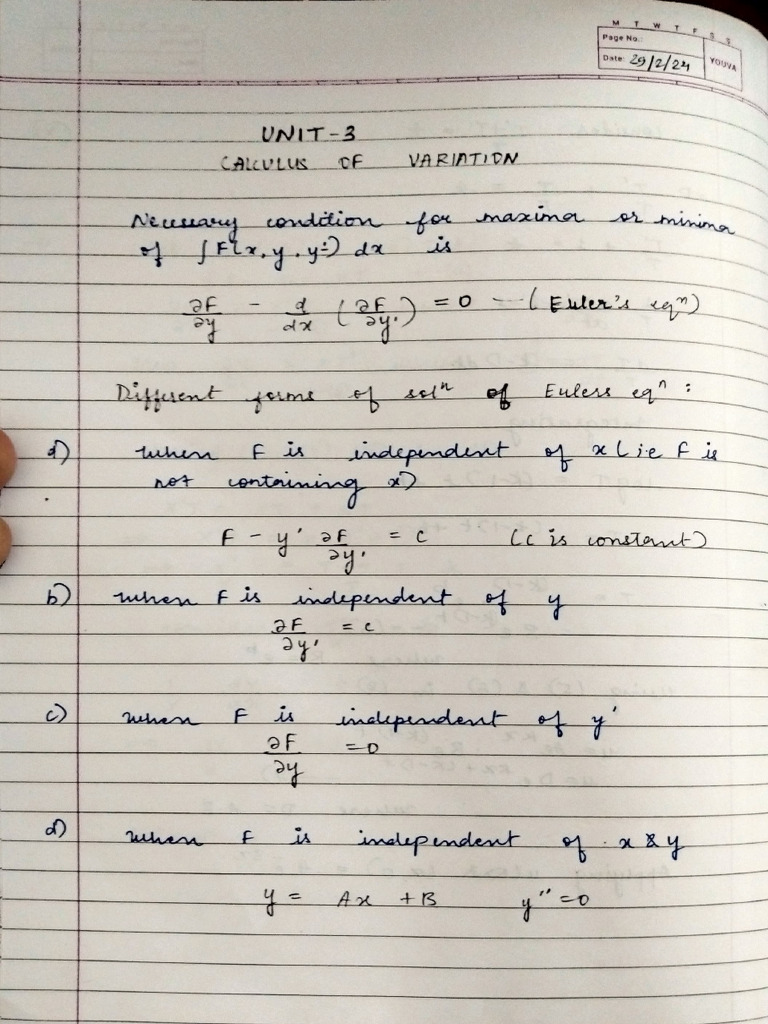 M T W T F S S
Page No.:
Date: 29/2/24 YOUVA
UNIT-3
CALCULUS OF VARIATION
Necessary condition for maxima or minima
of ∫F(x, y, y') dx is
∂F/∂y - d/dx (∂F/∂y') = 0 --- (Euler's eqⁿ)
Different forms of solⁿ of Eulers eqⁿ :
a) when F is independent of x (i.e F is
not containing x)
F - y' ∂F/∂y' = c (c is constant)
b) when F is independent of y
∂F/∂y' = c
c) when F is independent of y'
∂F/∂y = 0
d) when F is independent of x & y
y = Ax + B y'' = 0